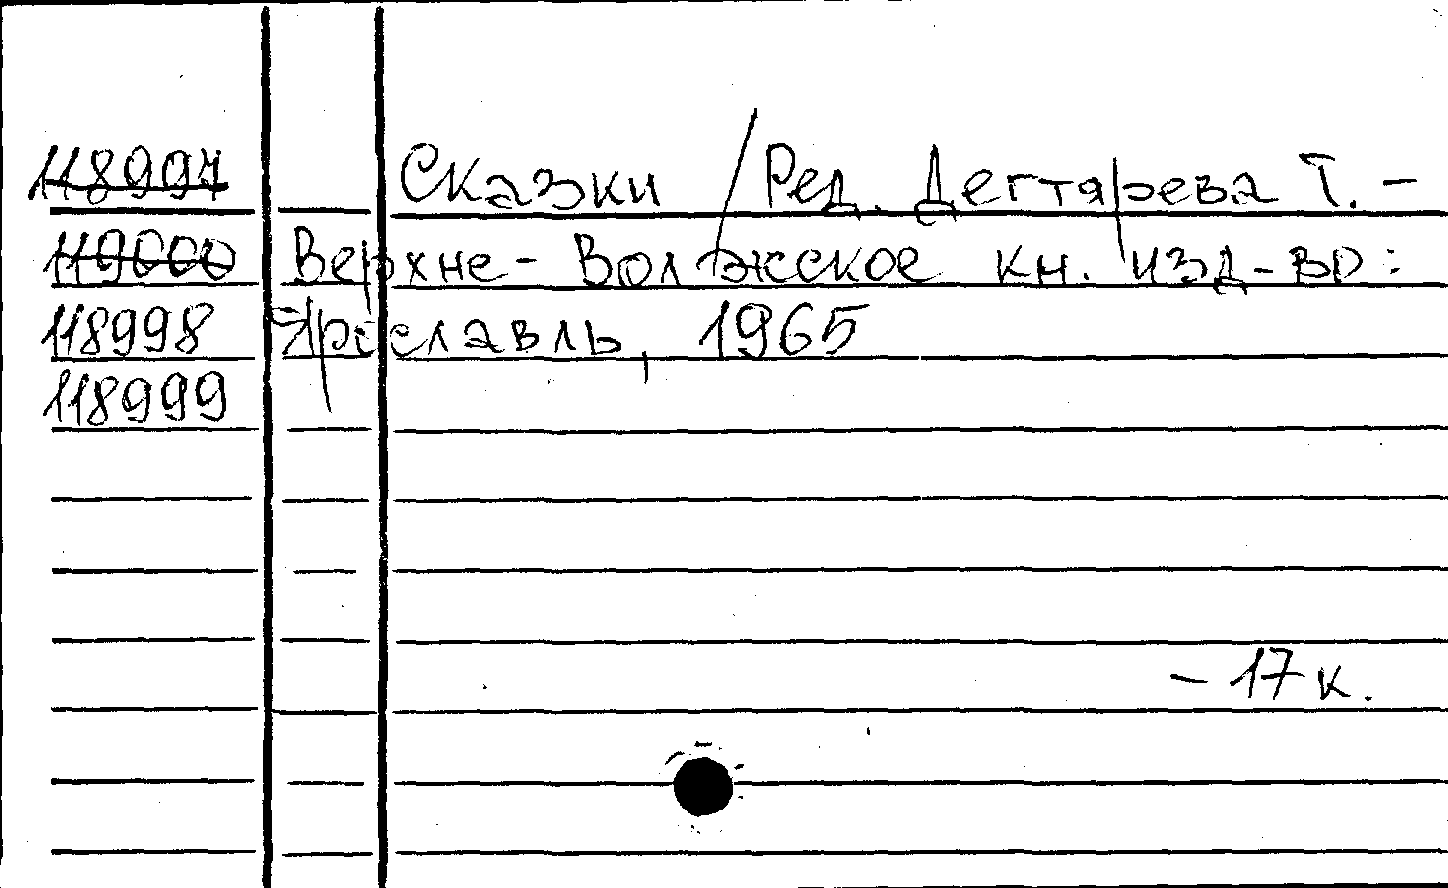 118997 Сказки / Ред. Дегтярева Т. -
119000 Верхне-Волжское кн. изд-во:
118998 Ярославль, 1965
118999
- 17 к.